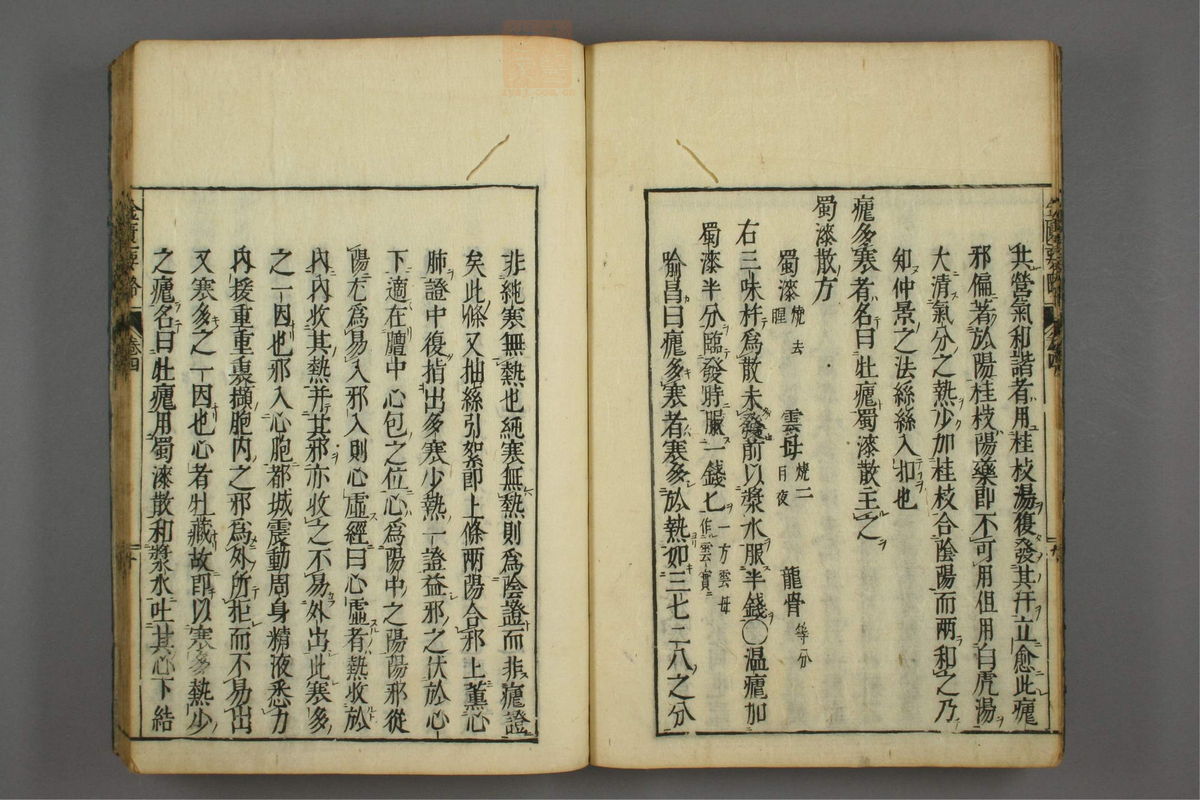 其營氣和諧者用桂枝湯復發其汗立愈此瘧
邪偏著於陽桂枝陽藥即不可用但用白虎湯
大清氣分之熱少加桂枝合陰陽而兩和之乃
知仲景之法絲絲入扣也
瘧多寒者名曰牡瘧蜀漆散主之
蜀漆散方
蜀漆燒去腥 雲母燒二日夜 龍骨等分
右三味杵為散未發前以漿水服半錢〇溫瘧加
蜀漆半分臨發時服一錢匕一方雲母作雲實
喻昌曰瘧多寒者寒多於熱如三七二八之分
非純寒無熱也純寒無熱則為陰證而非瘧證
矣此條又抽絲引絮即上條兩陽合邪上薰心
肺證中復指出多寒少熱一證益邪之伏於心
下適在膻中心包之位心為陽中之陽陽邪從
陽尤為易入邪入則心虛經曰心虛者熱收於
內內收其熱并其邪亦收之不易外出此寒多
之一因也邪入心胞都城震動周身精液悉力
內援重重裹擷胞內之邪為外所拒而不易出
又寒多之一因也心者牡藏故即以寒多熱少
之瘧名曰牡瘧用蜀漆散和漿水吐其心下結
金匱要略
卷四